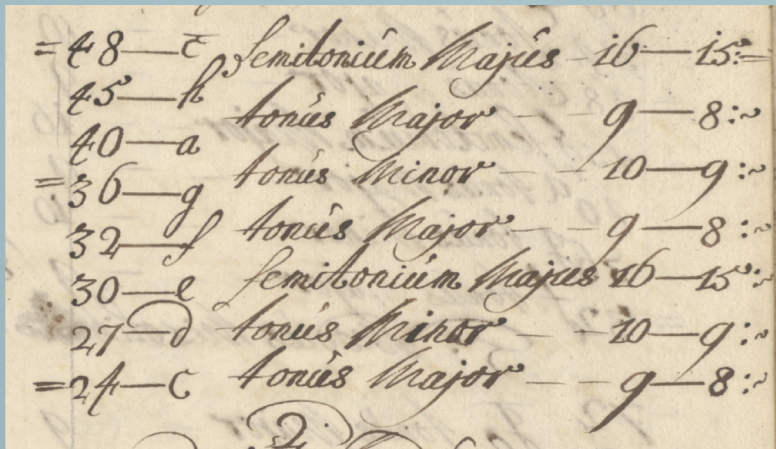 =48—c̄ Semitonium Majus 16—15:~
45—h
tonus Major — — 9—8:~
40—a
tonus Minor — — 10—9:~
=36—g
tonus Major — — 9—8:~
32—f
Semitonium Majus 16—15:~
30—e
tonus Minor — — 10—9:~
27—d
tonus Major — — 9—8:~
=24—c
2